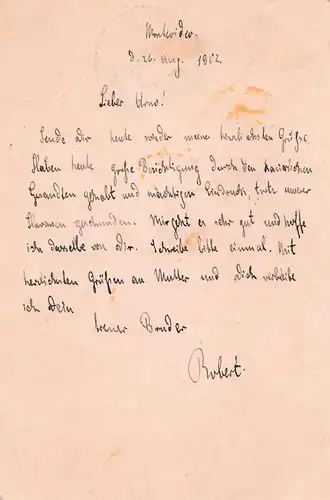 Montevideo.
d. 26. Aug. 1902.
Lieber Arno!
Sende Dir heute wieder meine herzlichsten Grüße.
Haben heute große Besichtigung durch den Kaiserlichen
Gesandten gehabt und mächtigen Eindruck, trotz unserer
geschunden. Mir geht es sehr gut und hoffe
ich dasselbe von Dir. Schreibe bitte einmal. Mit
herzlichsten Grüßen an Mutter und Dich verbleibe
ich Dein
treuer Bruder
Robert.